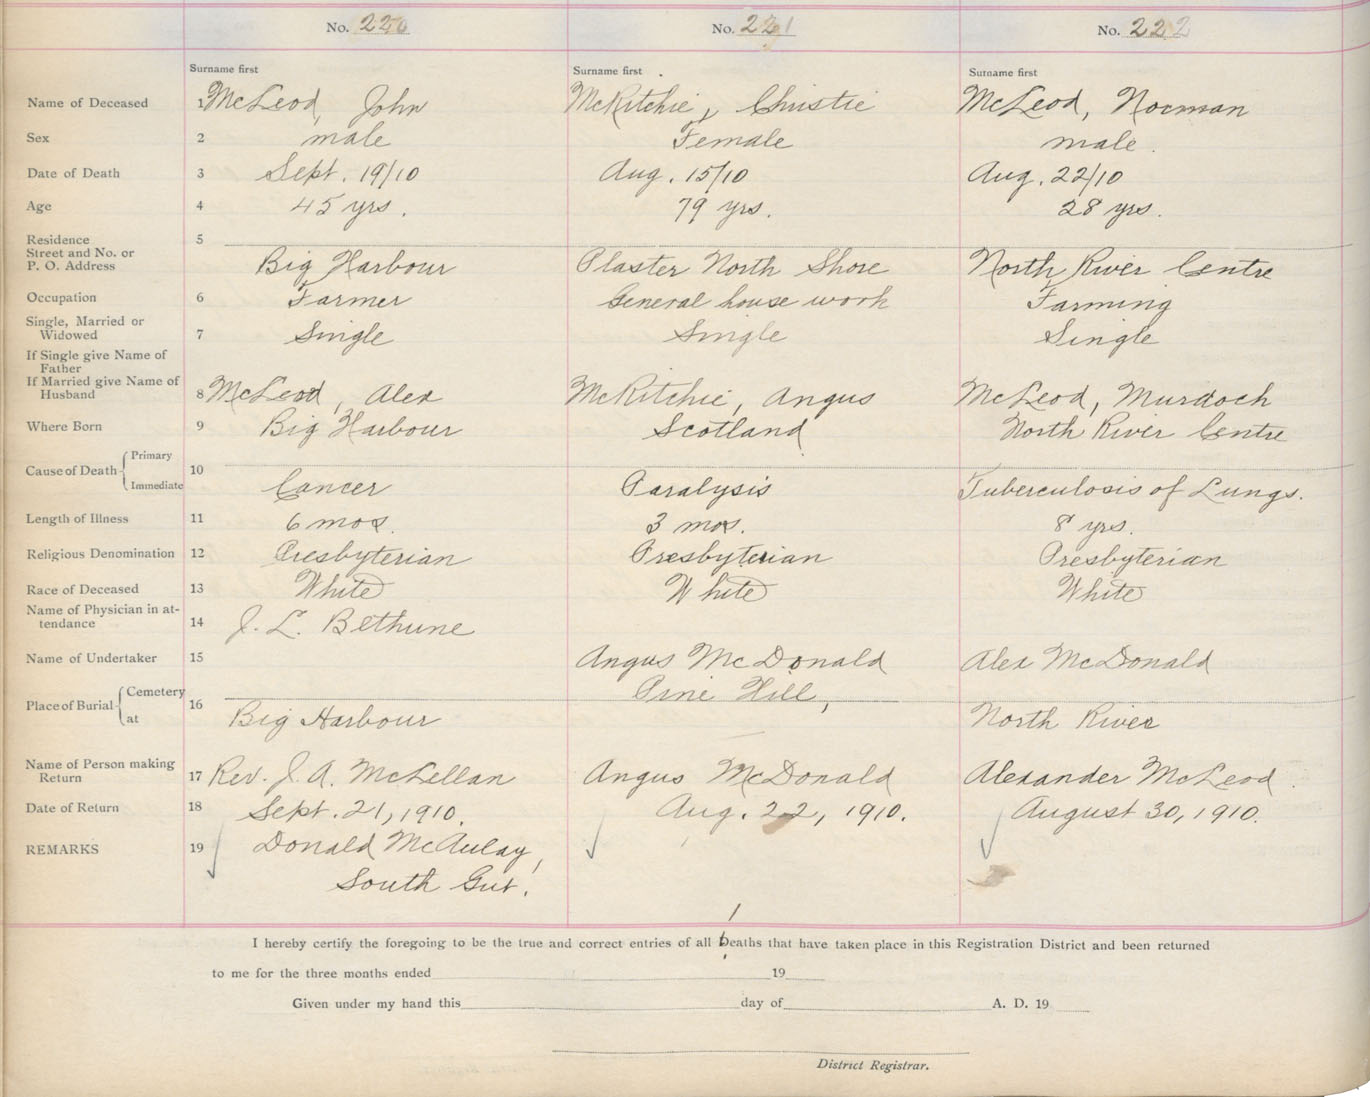 No. 220 No. 221 No. 222
Surname first Surname first Surname first
Name of Deceased 1 McLeod, John McRitchie, Christie McLeod, Norman
Sex 2 male Female male.
Date of Death 3 Sept. 19/10 Aug. 15/10 Aug. 22/10
Age 4 45 yrs. 79 yrs. 28 yrs.
Residence 5
Street and No. or
P. O. Address Big Harbour Plaster North Shore North River Centre
Occupation 6 Farmer General house work Farming
Single, Married or
Widowed 7 Single Single Single
If Single give Name of
Father
If Married give Name of
Husband 8 McLeod, Alex McRitchie, Angus McLeod, Murdoch
Where Born 9 Big Harbour Scotland North River Centre
Cause of Death { Primary 10
Immediate Cancer Paralysis Tuberculosis of Lungs.
Length of Illness 11 6 mos. 3 mos. 8 yrs.
Religious Denomination 12 Presbyterian Presbyterian Presbyterian
Race of Deceased 13 White White White
Name of Physician in at-
tendance 14 J. L. Bethune
Name of Undertaker 15 Angus McDonald Alex McDonald
Place of Burial { Cemetery 16 Pine Hill,
at Big Harbour North River
Name of Person making
Return 17 Rev. J. A. McLellan Angus McDonald Alexander McLeod.
Date of Return 18 Sept. 21, 1910. Aug. 22, 1910. August 30, 1910.
REMARKS 19 Donald McAulay,
South Gut.
I hereby certify the foregoing to be the true and correct entries of all Deaths that have taken place in this Registration District and been returned
to me for the three months ended 19
Given under my hand this day of A. D. 19
District Registrar.